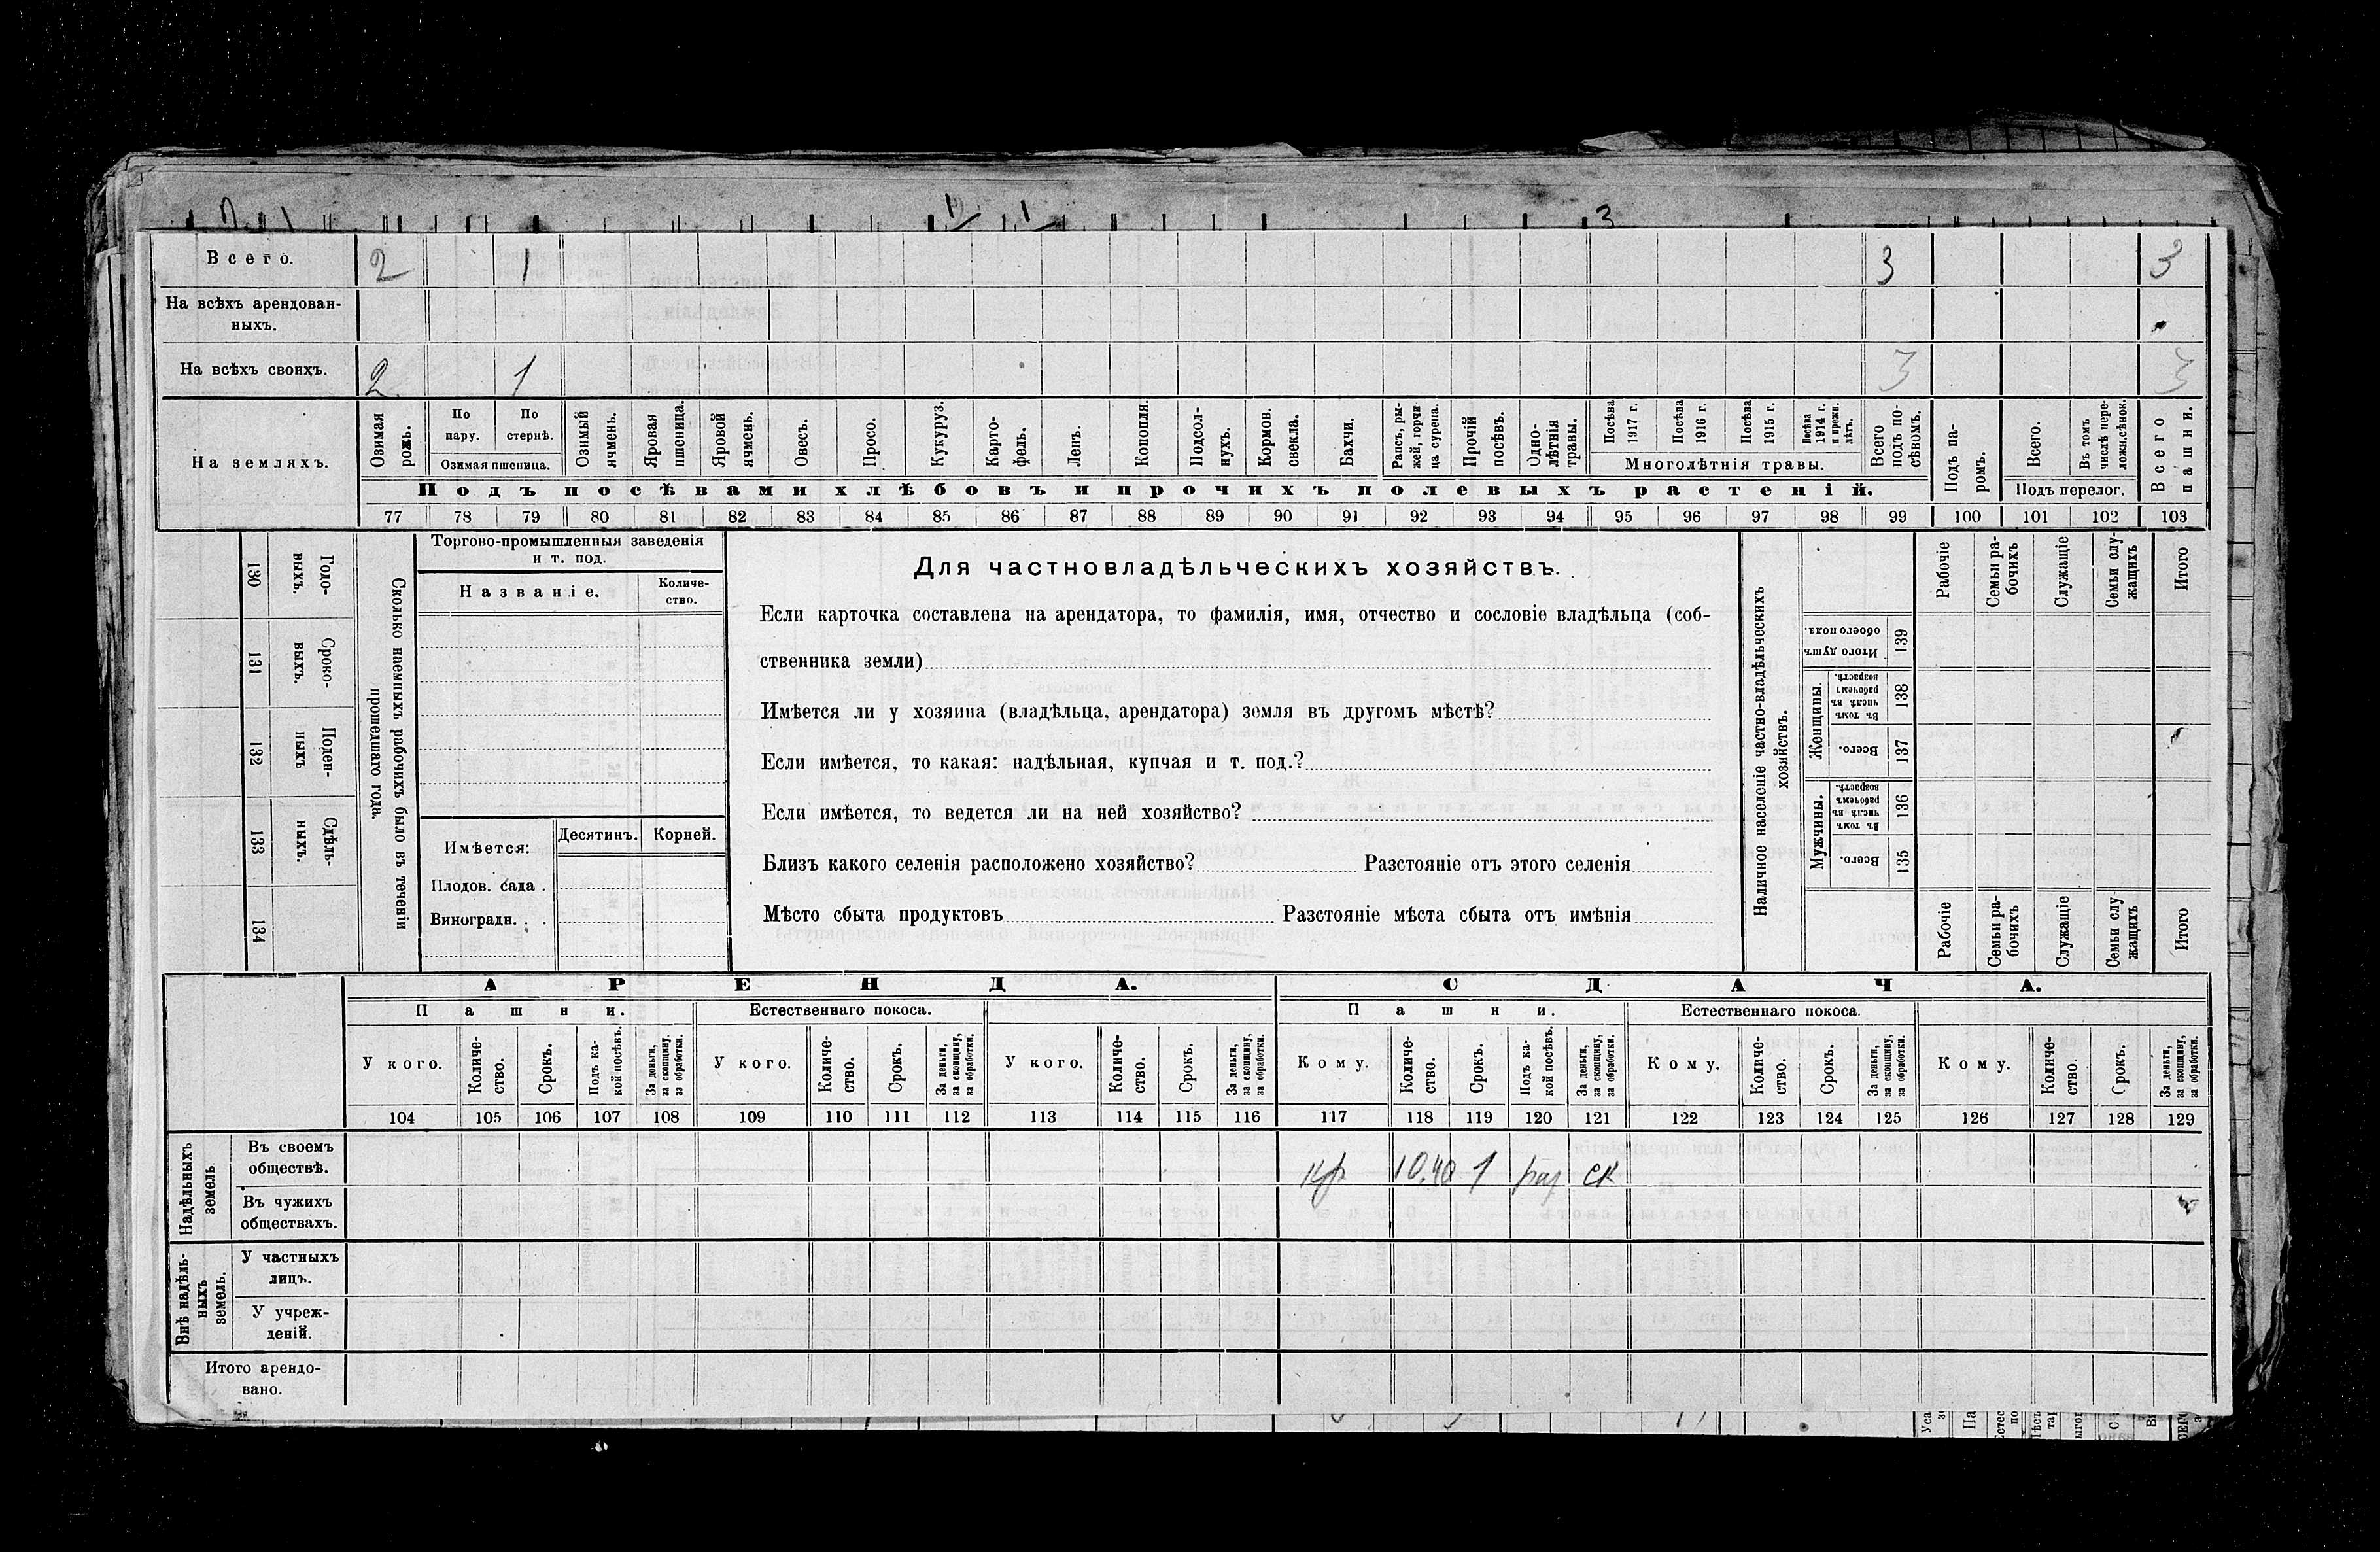 3
Всего. 2 1 3 3
На всѣхъ арендован-
ныхъ.
На всѣхъ своихъ. 2 1 3 3
На земляхъ.
Озимая рожь.
По пару.
По стернѣ.
Озимая пшеница.
Озимый ячмень.
Яровая пшоница.
Яровой ячмень.
Овесъ.
Просо.
Кукуруз.
Карто-фель.
Ленъ.
Конопля.
Подсол-нухъ.
Кормов. свекла.
Бахчи.
Рапсъ, ры-жей, горчи ца сурепа.
Прочій посѣвъ.
Одно-лѣтнія травы.
Посѣва 1917 г.
Посѣва 1916 г.
Посѣва 1915 г.
Посѣва 1914 г. и прежн. лѣтъ.
Многолѣтнія травы.
Всего подъ по-сѣвомъ.
Подъ па-ромъ.
Всего.
Въ томъ числѣ пере-ложн.сѣнок.
Подъ перелог.
Всего пашни.
Подъ посѣвами хлѣбовъ и прочихъ полевыхъ растеній.
77 78 79 80 81 82 83 84 85 86 87 88 89 90 91 92 93 94 95 96 97 98 99 100 101 102 103
130 Годо-ныхъ.
131 Сроко-ныхъ.
132 Поден-ныхъ
133 Сдѣль-ныхъ.
134
Сколько наемныхъ рабочихъ было въ теченіи
прошедшаго года.
Торгово-промышленныя заведенія
и т. под.
Названіе.
Количе-
ство.
Имѣется: Десятинъ. Корней.
Плодов. сада .
Виноградн. . .
Для частновладѣльческихъ хозяйствъ.
Если карточка составлена на арендатора, то фамилія, имя, отчество и сословіе владѣльца (соб-
ственника земли)
Имѣется ли у хозяина (владѣльца, арендатора) земля въ другомъ мѣстѣ?
Если имѣется, то какая: надѣльная, купчая и т. под.?
Если имѣется, то ведется ли на ней хозяйство?
Близъ какого селенія расположено хозяйство? Разстояніе отъ этого селенія
Мѣсто сбыта продуктовъ Разстояніе мѣста сбыта отъ имѣнія
Наличное населеніе частно-владѣльческихъ
хозяйствъ.
Рабочіе
Семьи ра-бочихъ
Служащіе
Семьи слу-жащихъ
Итого
Итого душъ обоего пола. 139
Женщины.
Въ томъ числѣ въ рабочемъ возрастѣ. 138
Всего. 137
Мужчины.
Въ томъ числѣ въ рабочемъ возрастѣ. 136
Всего. 135
Рабочіе
Семьи ра-бочихъ
Служащіе
Семьи слу жащихъ
Итого
АРЕНДА. СДАЧА.
Пашни. Естественнаго покоса. Пашни. Естественнаго покоса.
У кого.
Количе-ство.
Срокъ.
Подъ ка-кой посѣвъ.
За деньги, за скопщину, за обработки.
У кого.
Количе-ство.
Срокъ.
За деньги, за скопщину, за обработки.
У кого.
Количе-ство.
Срокъ.
За деньги, за скопщину, за обработки.
Кому.
Количе-ство.
Срокъ.
Подъ ка-кой посѣвъ.
За деньги, за скопщину, за обработки.
Кому.
Количе-ство.
Срокъ.
За деньги, за скопщину, за обработки.
Кому.
Количе-ство.
Срокъ.
За деньги, за скопщину, за обработки.
104 105 106 107 108 109 110 111 112 113 114 115 116 117 118 119 120 121 122 123 124 125 126 127 128 129
Надѣльныхъ земель
Въ своемъ
обществѣ. кр 10,40 1 раз ск
Въ чужихъ
обществахъ.
Внѣ надѣль-ныхъ земель.
У частныхъ
лицъ.
У учреж-
деній.
Итого арендо-
вано.